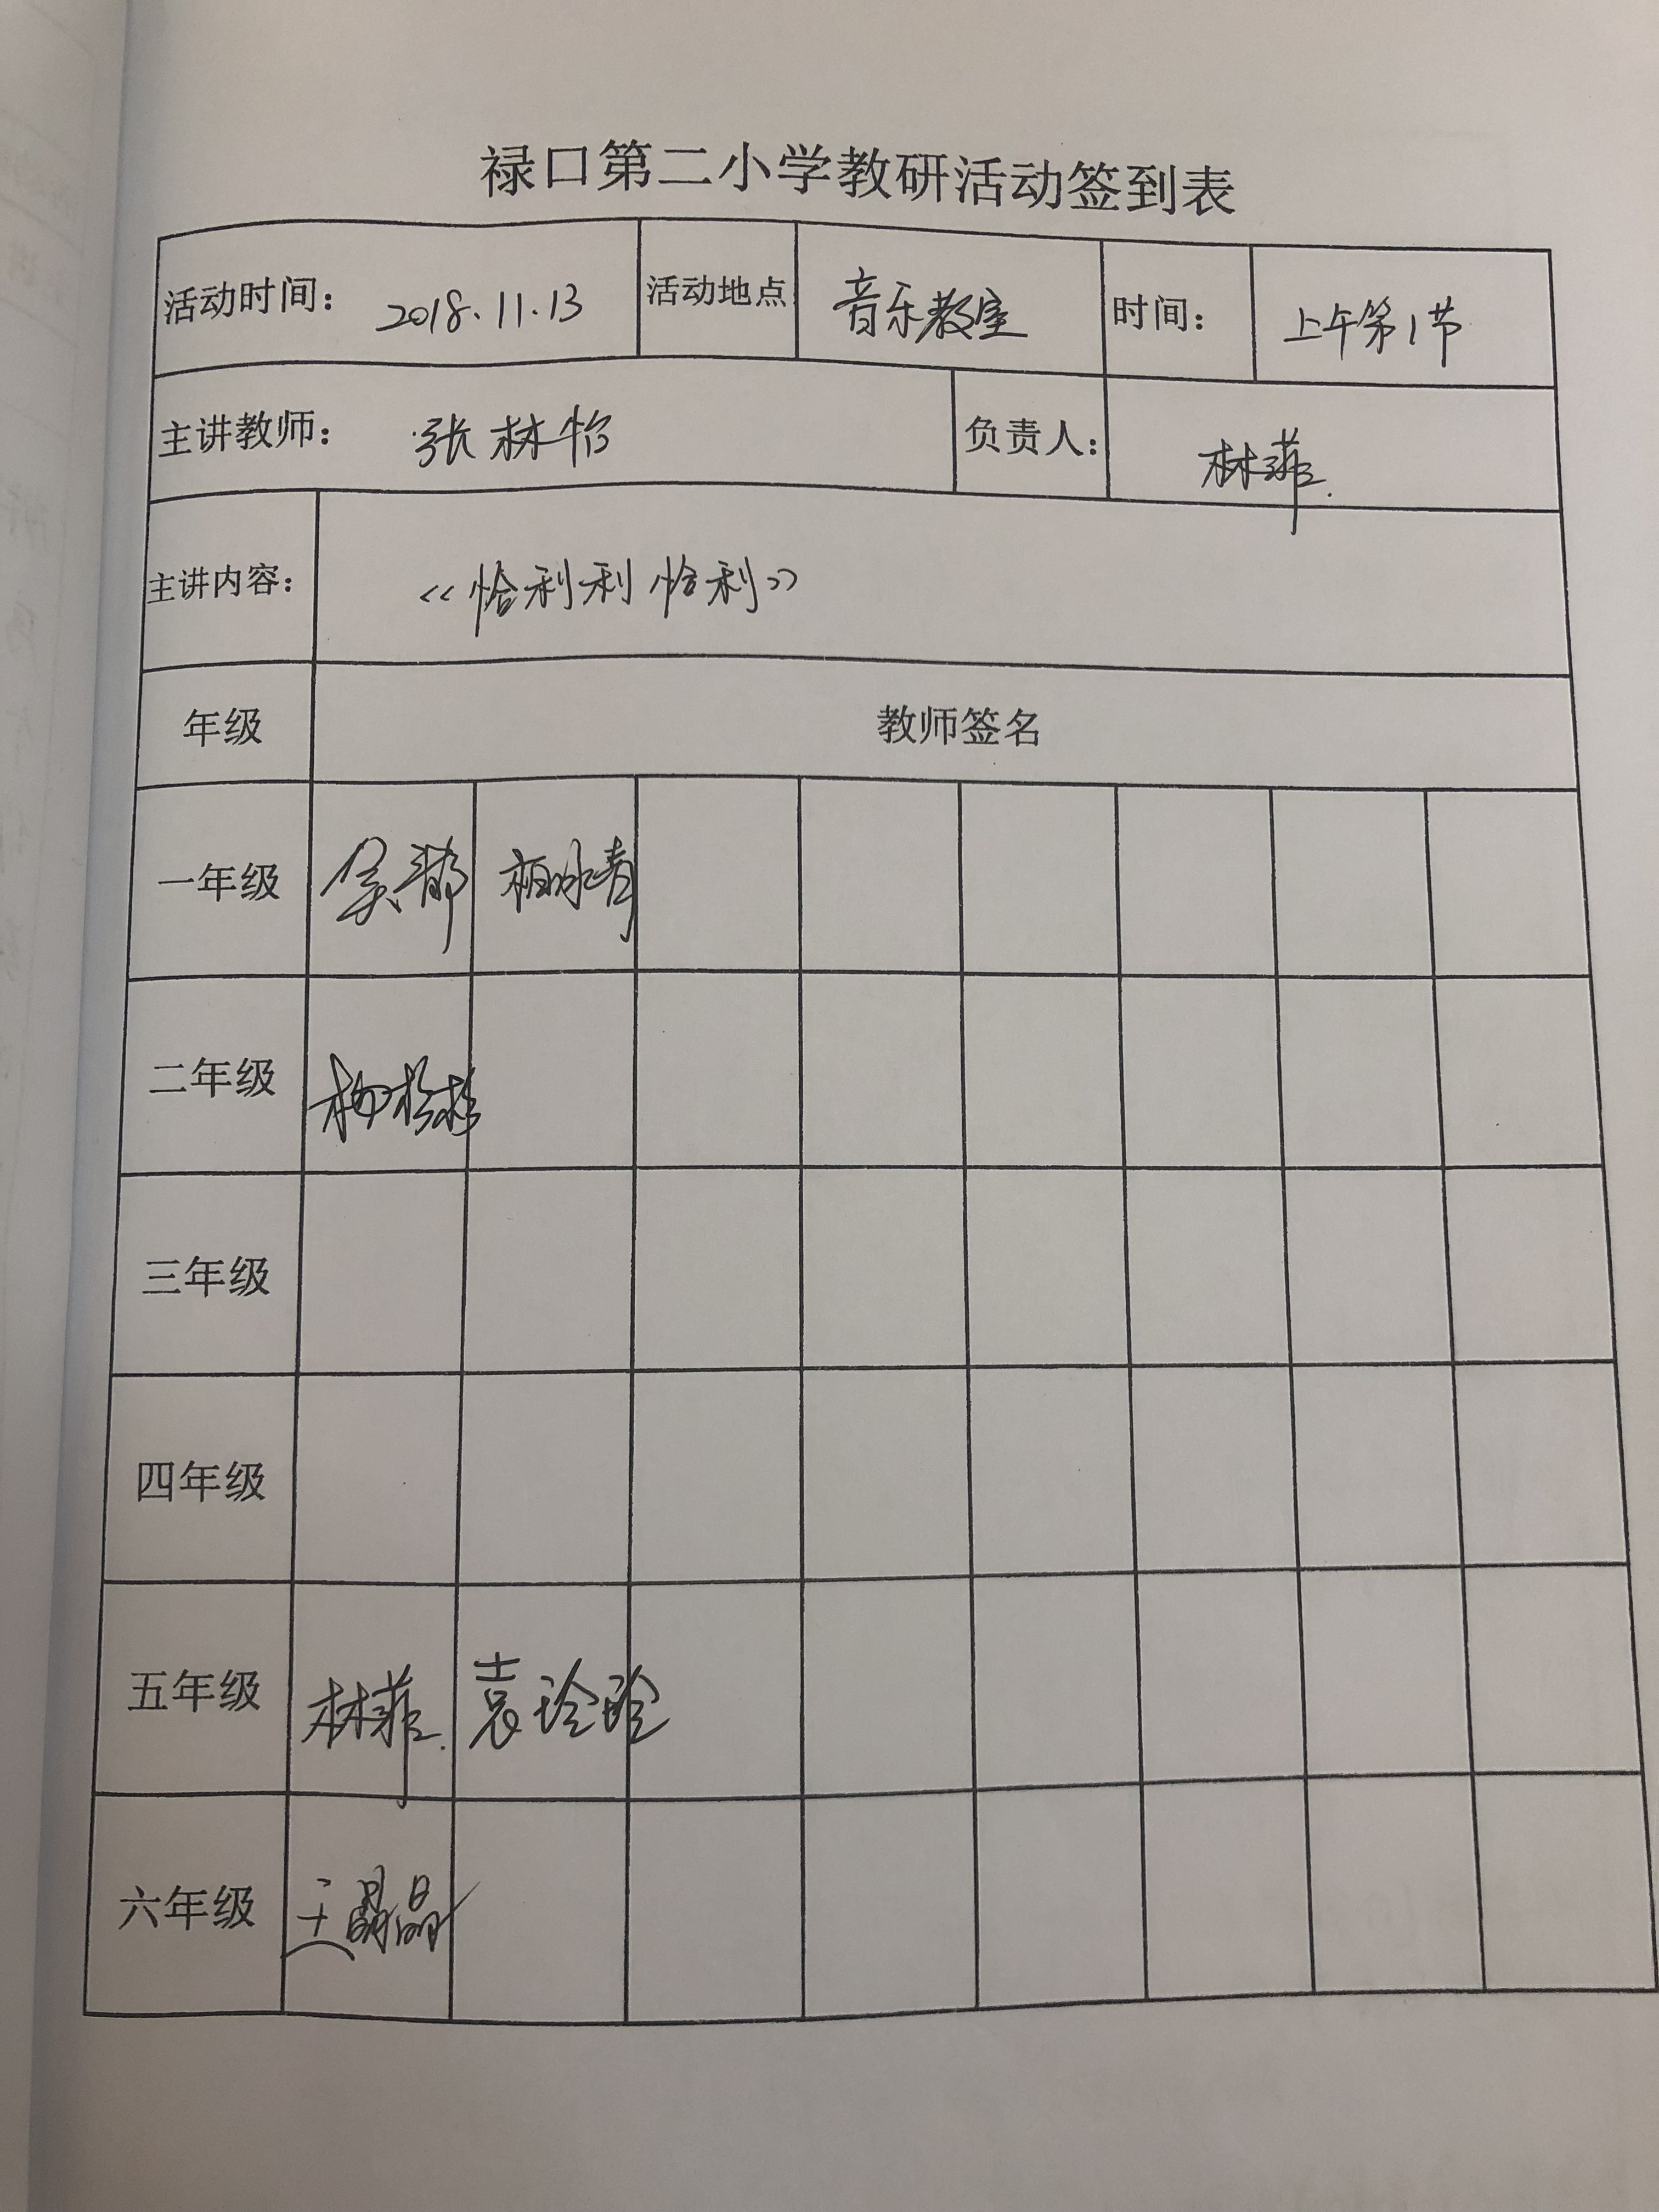 禄口第二小学教研活动签到表
活动时间： 2018.11.13 活动地点 音乐教室 时间： 上午第1节
主讲教师： 张林怡 负责人： 林菲
主讲内容： 《恰利利恰利》
年级 教师签名
一年级 吴静 柏冰青
二年级
三年级
四年级
五年级 林菲 袁玲玲
六年级 王晶晶